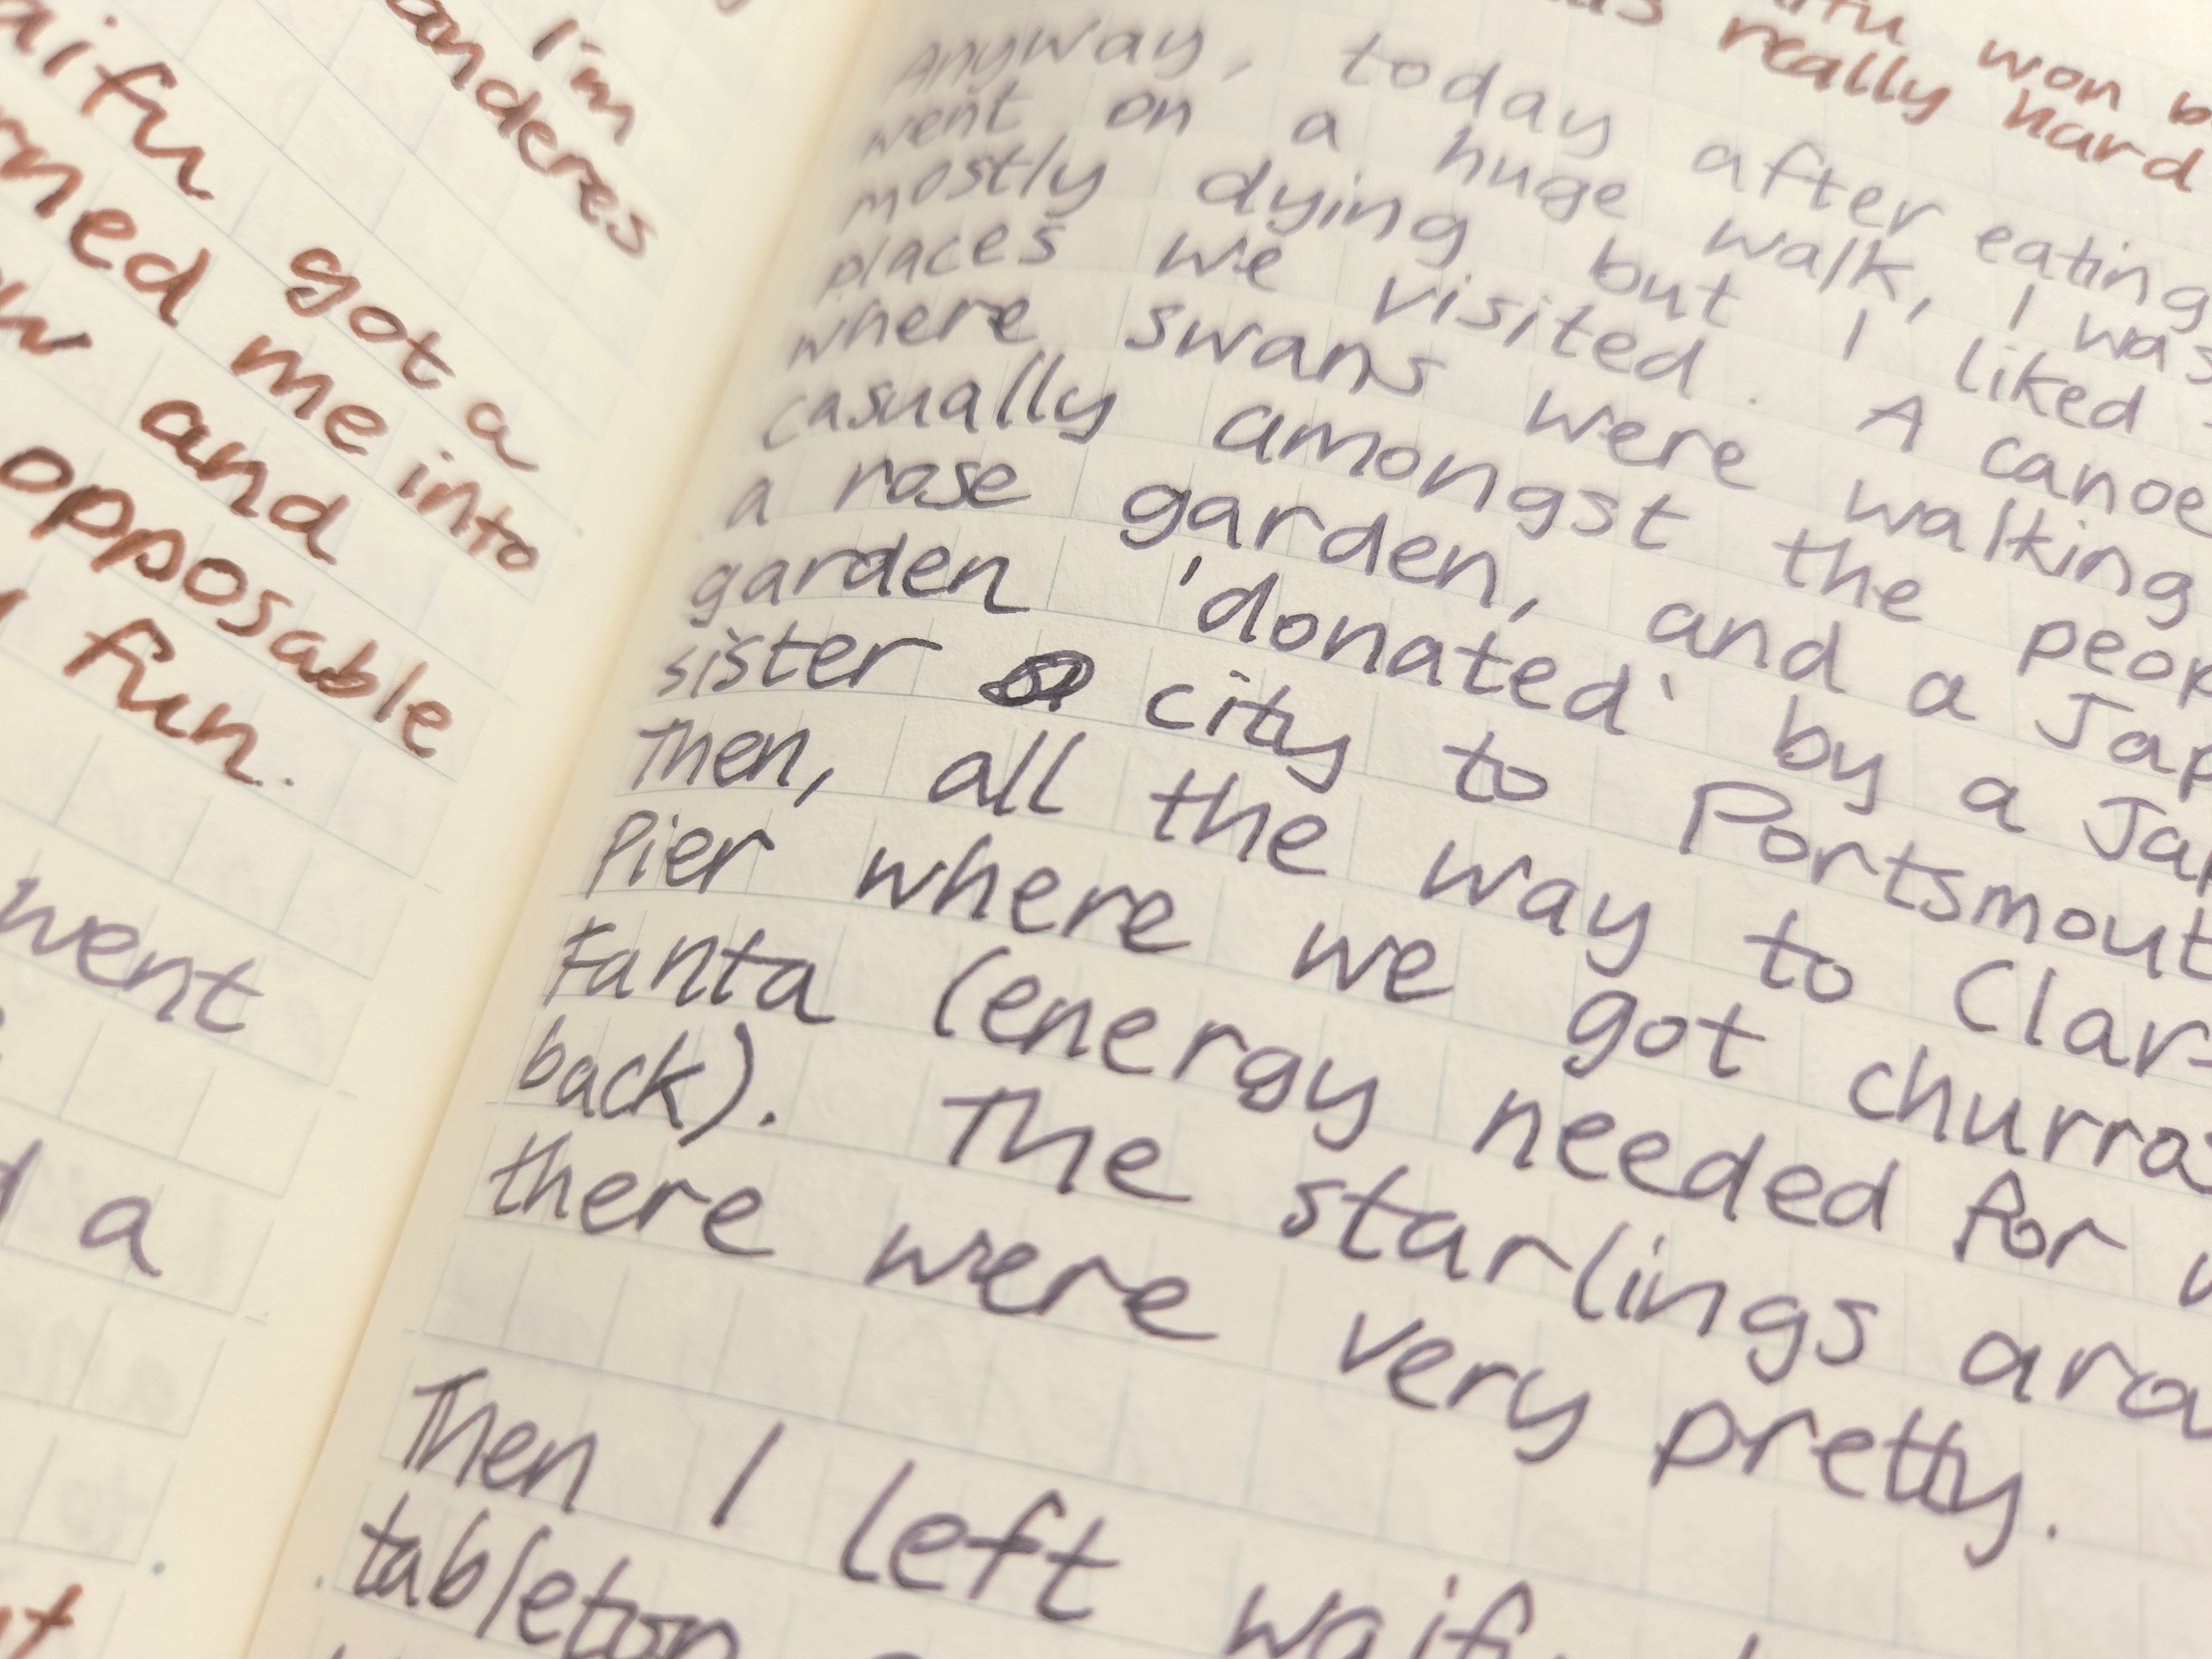 I'm
anderes
got a
rned me into
and
opposable
fun.
went
a
won
really hard
Anyway, today after eating
went on a huge walk, I was
mostly dying but I liked
places we visited. A canoe
where swans were walking
casually amongst the
a rose garden, and a
garden 'donated' by a
sister city to
Then, all the way to
Pier where we got
Fanta (energy needed for
back). The starlings
there were very pretty.
Then I left
tabletop